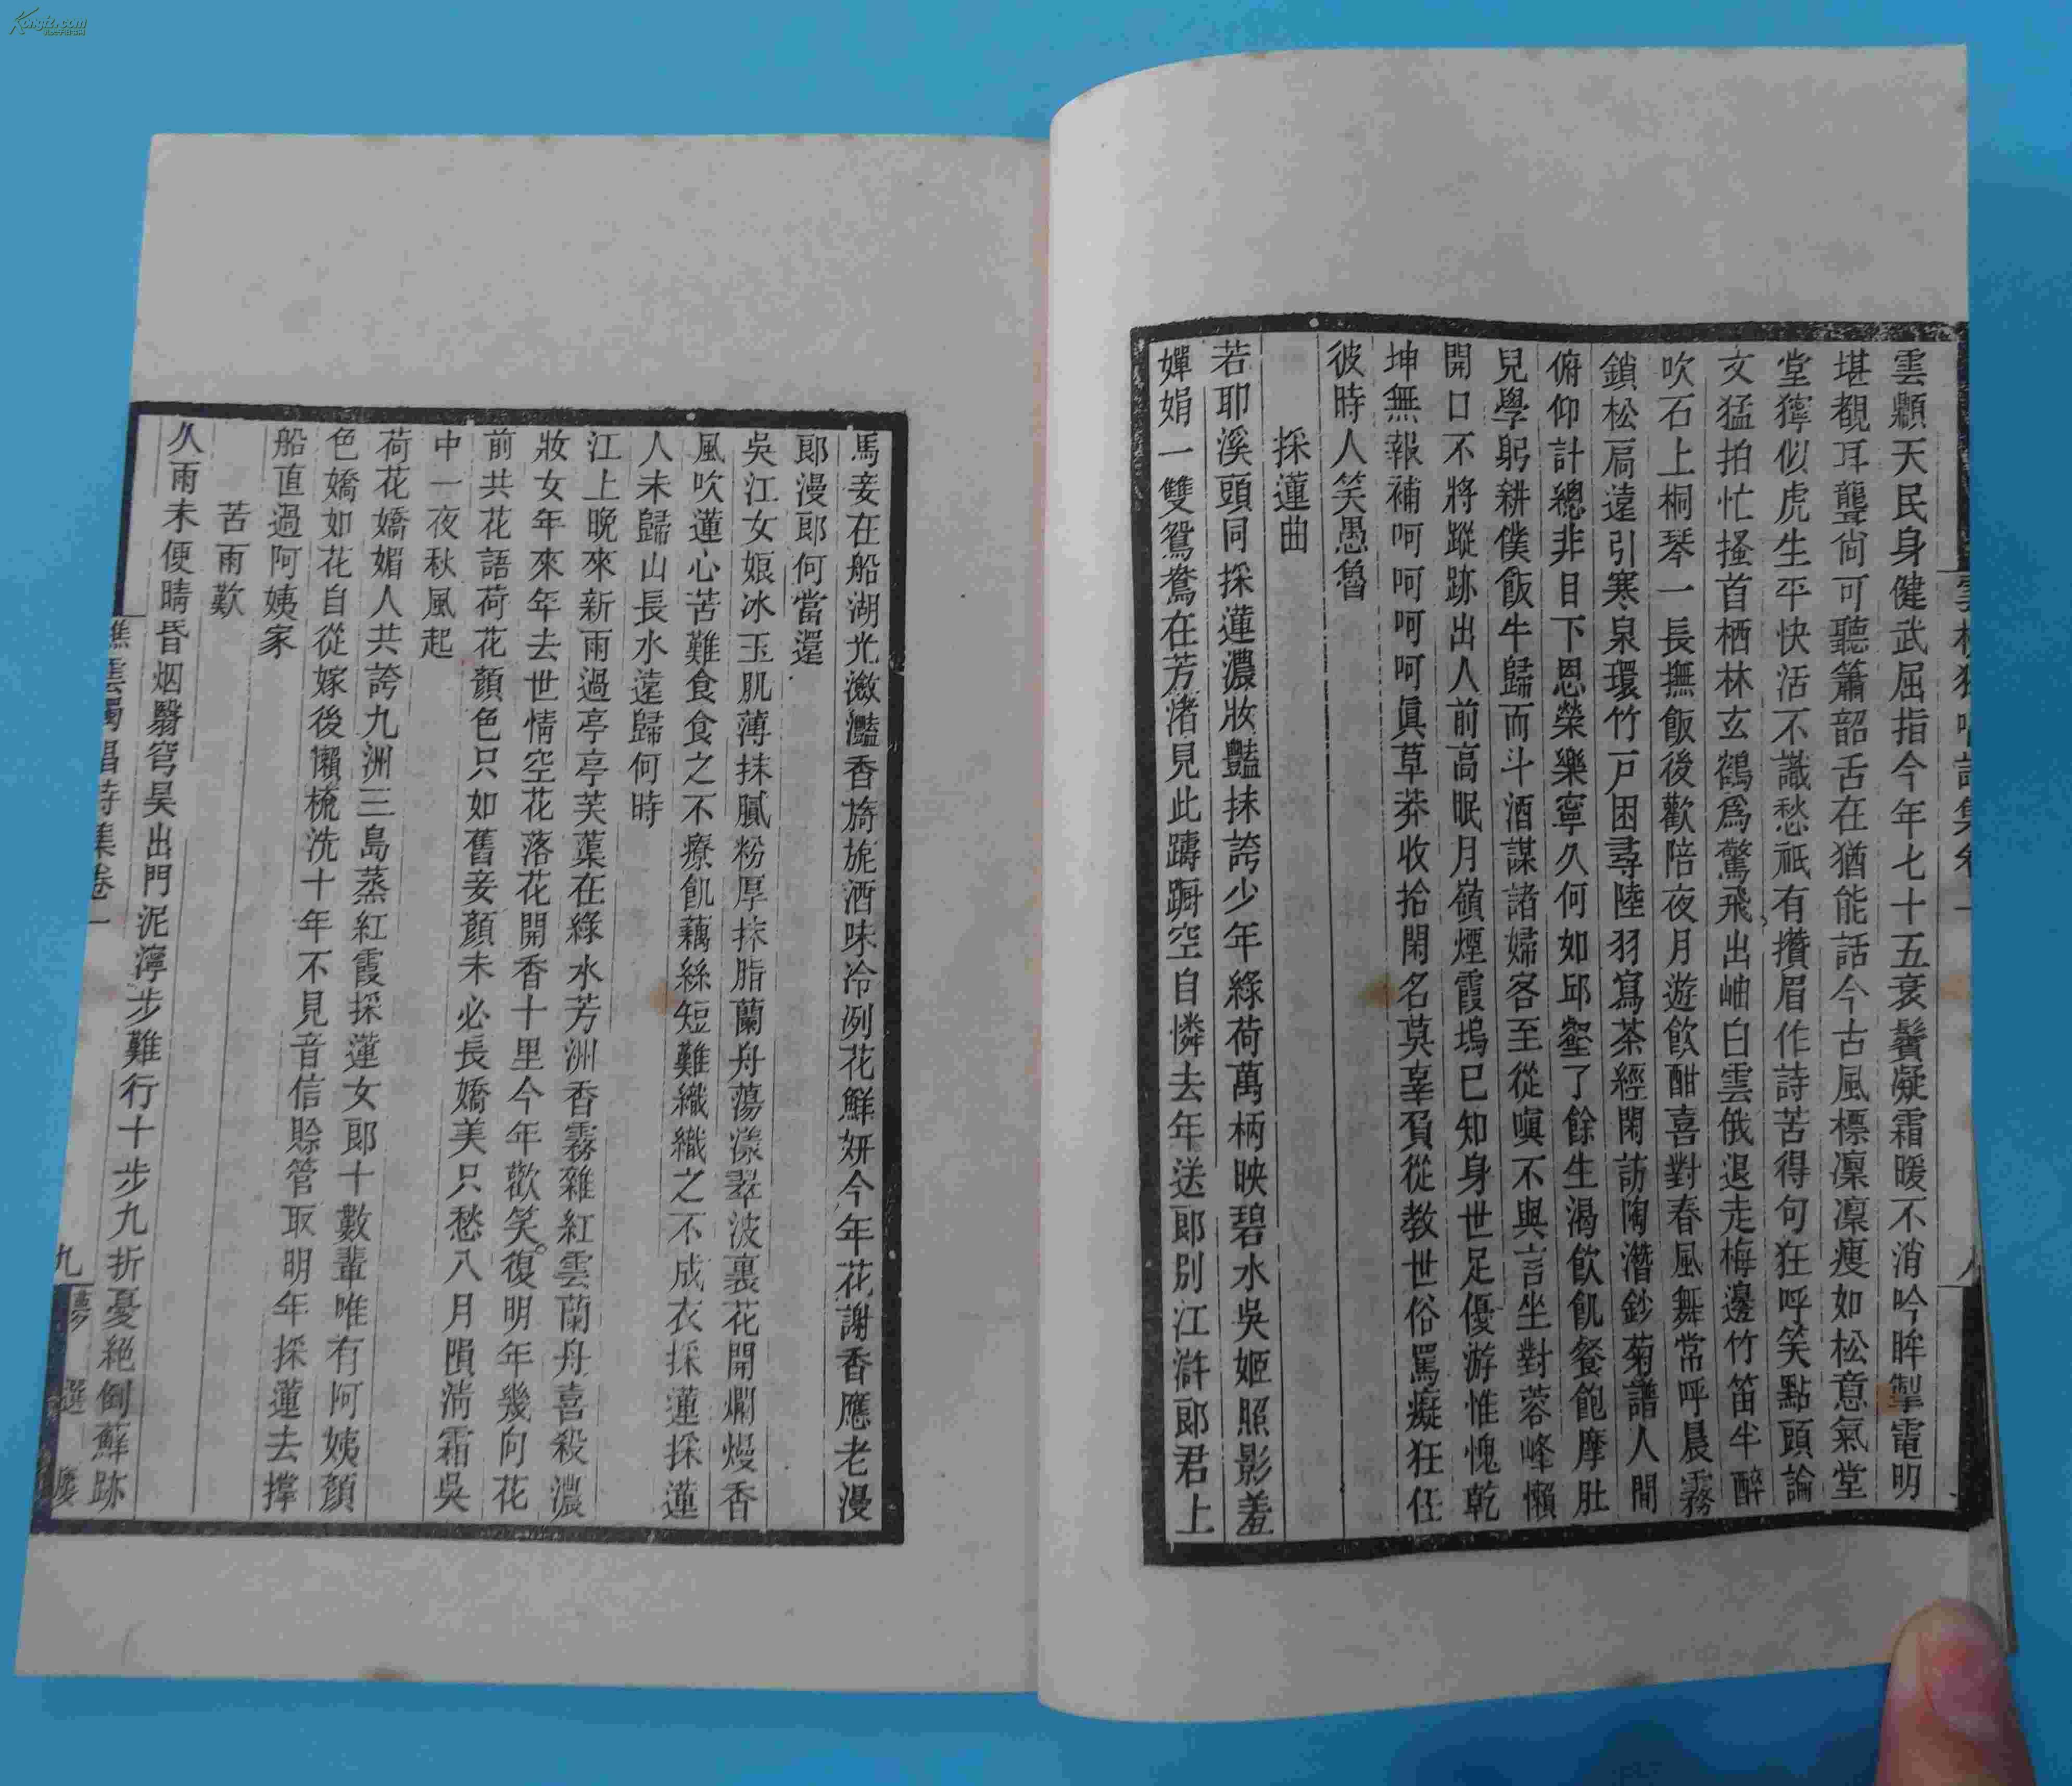 雲顥天民身健武屈指今年七十五衰鬢凝霜暖不消吟眸掣電明
堪覩耳聾尙可聽簫韶舌在猶能話今古風標凜凜瘦如松意氣堂
堂獰似虎生平快活不識愁祇有攢眉作詩苦得句狂呼笑點頭論
文猛拍忙搔首栖林玄鶴爲驚飛出岫白雲俄退走梅邊竹笛半醉
吹石上桐琴一長撫飯後歡陪夜月遊飮酣喜對春風舞常呼晨霧
鎖松扃遠引寒泉環竹戸困尋陸羽寫茶經閑訪陶潛鈔菊譜人間
俯仰計總非目下恩榮樂寧久何如邱壑了餘生渴飮飢餐飽摩肚
兒學躬耕僕飯牛歸而斗酒謀諸婦客至從嗔不與言坐對蓉峰懶
開口不將蹤跡出人前高眠月嶺煙霞塢已知身世足優游惟愧乾
坤無報補呵呵呵呵眞草莽收拾閑名莫辜負從教世俗罵癡狂任
彼時人笑愚魯
採蓮曲
若耶溪頭同採蓮濃妝豔抹誇少年綠荷萬柄映碧水吳姬照影羞
嬋娟一雙鴛鴦在芳渚見此躊躕空自憐去年送郞別江滸郞君上
馬妾在船湖光瀲灩香旖旎酒味冷洌花鮮妍今年花謝香應老漫
郞漫郞何當還
吳江女娘冰玉肌薄抹膩粉厚抹脂蘭舟蕩漾翠波裏花開爛熳香
風吹蓮心苦難食食之不療飢藕絲短難織織之不成衣採蓮採蓮
人未歸山長水遠歸何時
江上晚來新雨過亭亭芙蕖在綠水芳洲香霧雜紅雲蘭舟喜殺濃
妝女年來年去世情空花落花開香十里今年歡笑復明年幾向花
前共花語荷花顏色只如舊妾顏未必長嬌美只愁八月隕淸霜吳
中一夜秋風起
荷花嬌媚人共誇九洲三島蒸紅霞採蓮女郞十數輩唯有阿姨顏
色嬌如花自從嫁後懶梳洗十年不見音信賒管取明年採蓮去撐
船直過阿姨家
苦雨歎
久雨未便晴昏烟翳穹昊出門泥濘步難行十步九折憂絕倒蘚跡
樵雲獨唱詩集卷一
九
夢選廔